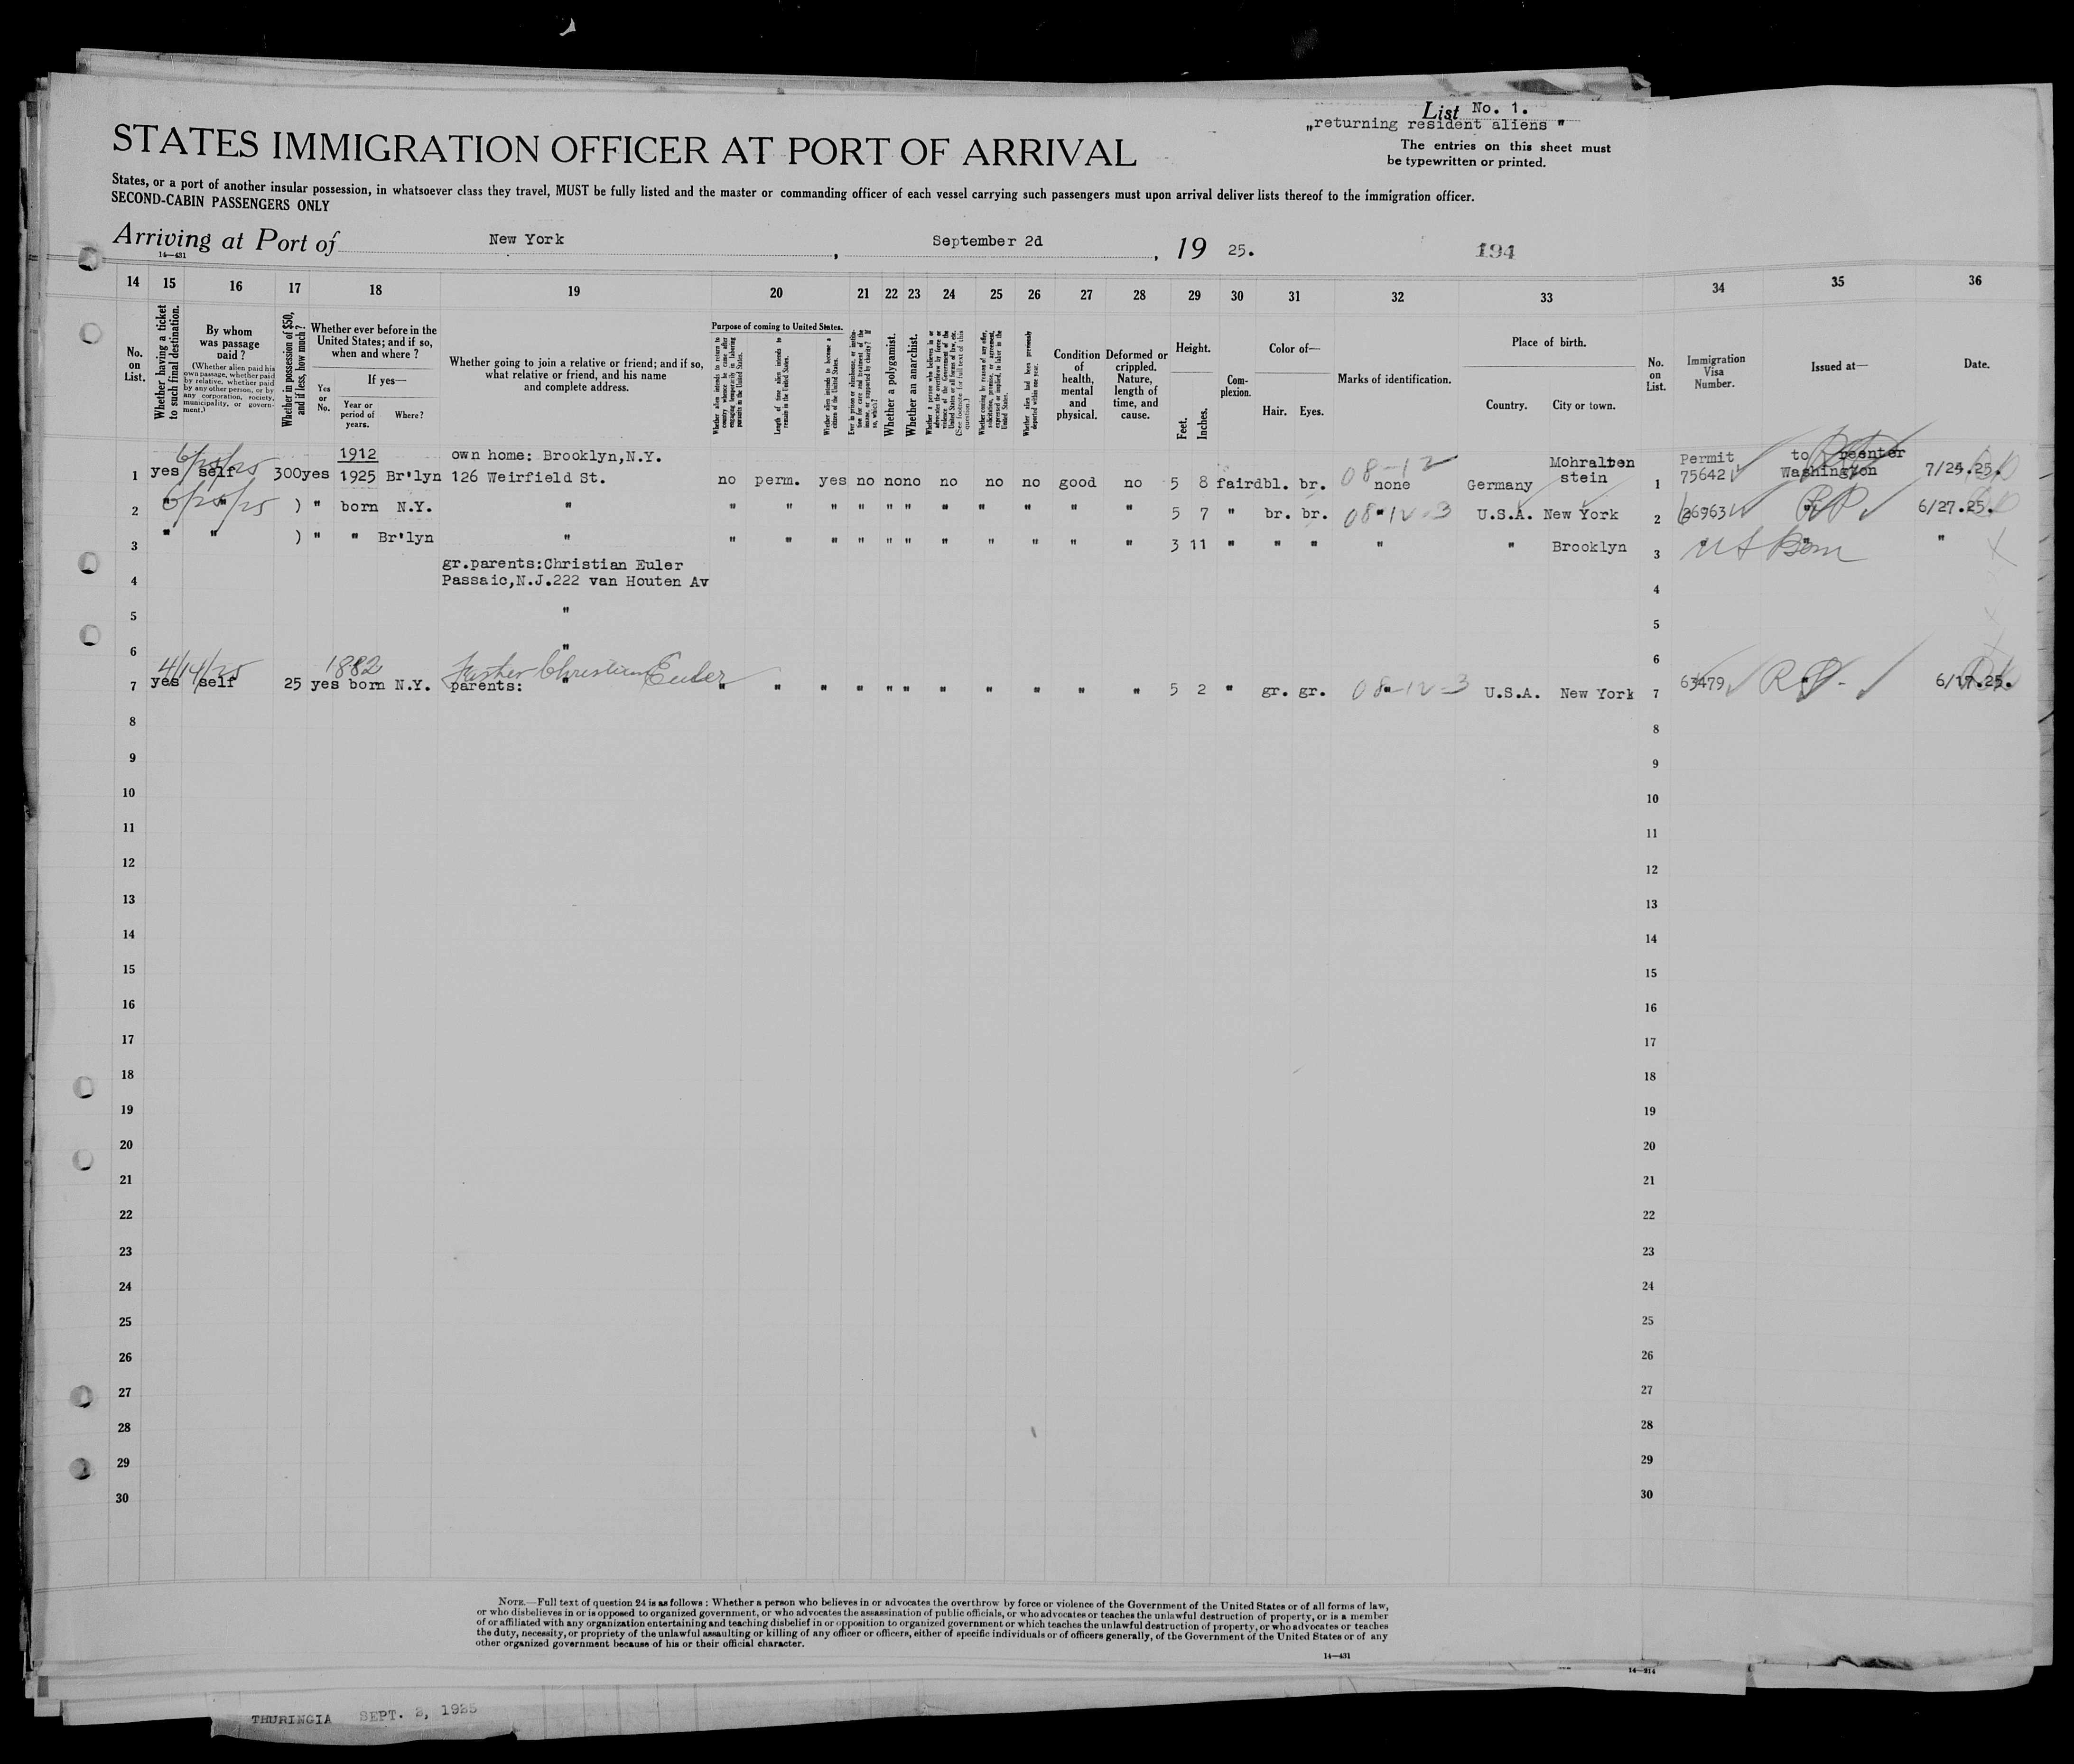 List No. 1.
„returning resident aliens "
The entries on this sheet must
be typewritten or printed.
STATES IMMIGRATION OFFICER AT PORT OF ARRIVAL
States, or a port of another insular possession, in whatsoever class they travel, MUST be fully listed and the master or commanding officer of each vessel carrying such passengers must upon arrival deliver lists thereof to the immigration officer.
SECOND-CABIN PASSENGERS ONLY
Arriving at Port of New York, September 2d, 19 25. 194
14—431
14 15 16 17 18 19 20 21 22 23 24 25 26 27 28 29 30 31 32 33 34 35 36
No. on List.
Whether having a ticket to such final destination.
By whom was passage paid?
(Whether alien paid his own passage, whether paid by relative, whether paid by any other person, or by any corporation, society, municipality, or government.)
Whether in possession of $50, and if less, how much?
Whether ever before in the United States; and if so, when and where?
Yes or No.
If yes—
Year or period of years.
Where?
Whether going to join a relative or friend; and if so, what relative or friend, and his name and complete address.
Purpose of coming to United States.
Whether alien intends to return to country whence he came after engaging temporarily in laboring pursuits in the United States.
Length of time alien intends to remain in the United States.
Whether alien intends to become a citizen of the United States.
Whether a polygamist.
Whether an anarchist.
Condition of health, mental and physical.
Deformed or crippled. Nature, length of time, and cause.
Height.
Feet.
Inches.
Complexion.
Color of—
Hair.
Eyes.
Marks of identification.
Place of birth.
Country.
City or town.
No. on List.
Immigration Visa Number.
Issued at—
Date.
1912
own home: Brooklyn,N.Y.
Mohralten
Permit to reenter
1 yes self 300 yes 1925 Br'lyn 126 Weirfield St. no perm. yes no no no no no no good no 5 8 fair dbl. br. none Germany stein 1 75642 Washington 7/24.25.
08-12
2 " " ) " born N.Y. " " " " " " " " " " " " 5 7 " br. br. " U.S.A. New York 2 26963 " 6/27.25.
08-12-3
3 " " ) " " Br'lyn " " " " " " " " " " " " 3 11 " " " " " Brooklyn 3 " " "
US Born
gr.parents:Christian Euler
4 Passaic,N.J.222 van Houten Av 4
5 " 5
6 " 6
4/14/25 1882 Father Christian Euler
7 yes self 25 yes born N.Y. parents: " " " " " " " " " " " " 5 2 " gr. gr. " U.S.A. New York 7 63479 " 6/17.25.
08-12-3
8 8
9 9
10 10
11 11
12 12
13 13
14 14
15 15
16 16
17 17
18 18
19 19
20 20
21 21
22 22
23 23
24 24
25 25
26 26
27 27
28 28
29 29
30 30
NOTE.—Full text of question 24 is as follows: Whether a person who believes in or advocates the overthrow by force or violence of the Government of the United States or of all forms of law,
or who disbelieves in or is opposed to organized government, or who advocates the assassination of public officials, or who advocates or teaches the unlawful destruction of property, or is a member
of or affiliated with any organization entertaining and teaching disbelief in or opposition to organized government or which teaches the unlawful destruction of property, or who advocates or teaches
the duty, necessity, or propriety of the unlawful assaulting or killing of any officer or officers, either of specific individuals or of officers generally, of the Government of the United States or of any
other organized government because of his or their official character.
14—431
14—914
THURINGIA SEPT. 2, 1925